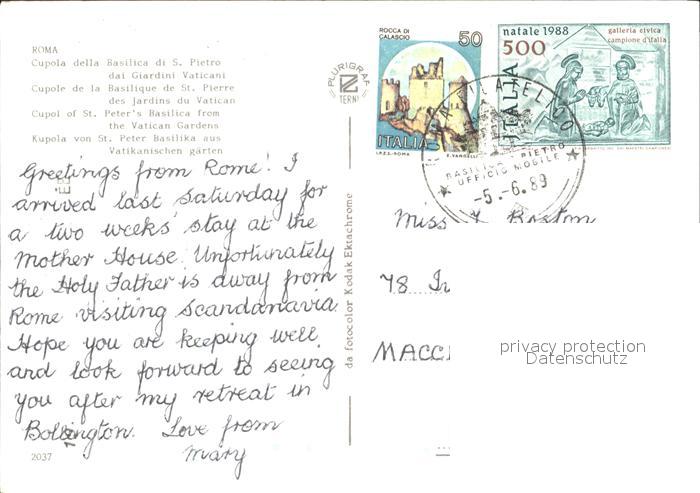 ROMA
Cupola della Basilica di S. Pietro
dai Giardini Vaticani
Cupole de la Basilique de St. Pierre
des jardins du Vatican
Cupol of St. Peter's Basilica from
the Vatican Gardens
Kupola von St. Peter Basilika aus
Vatikanischen gärten
Greetings from Rome! I
arrived last Saturday for
a two weeks' stay at the
Mother House. Unfortunately
the Holy Father is away from
Rome visiting Scandanavia.
Hope you are keeping well
and look forward to seeing
you after my retreat in
Bollington. Love from
Mary
2037
PLURIGRAF
TERNI
da fotocolor Kodak Ektachrome
ROCCA DI
CALASCIO
50
ITALIA
I.P.Z.S.-ROMA
natale 1988
500
galleria civica
campione d'italia
ITALIA
BASILICA PIETRO
UFFICIO MOBILE
-5.-6.89
Miss
78
MACC
privacy protection
Datenschutz